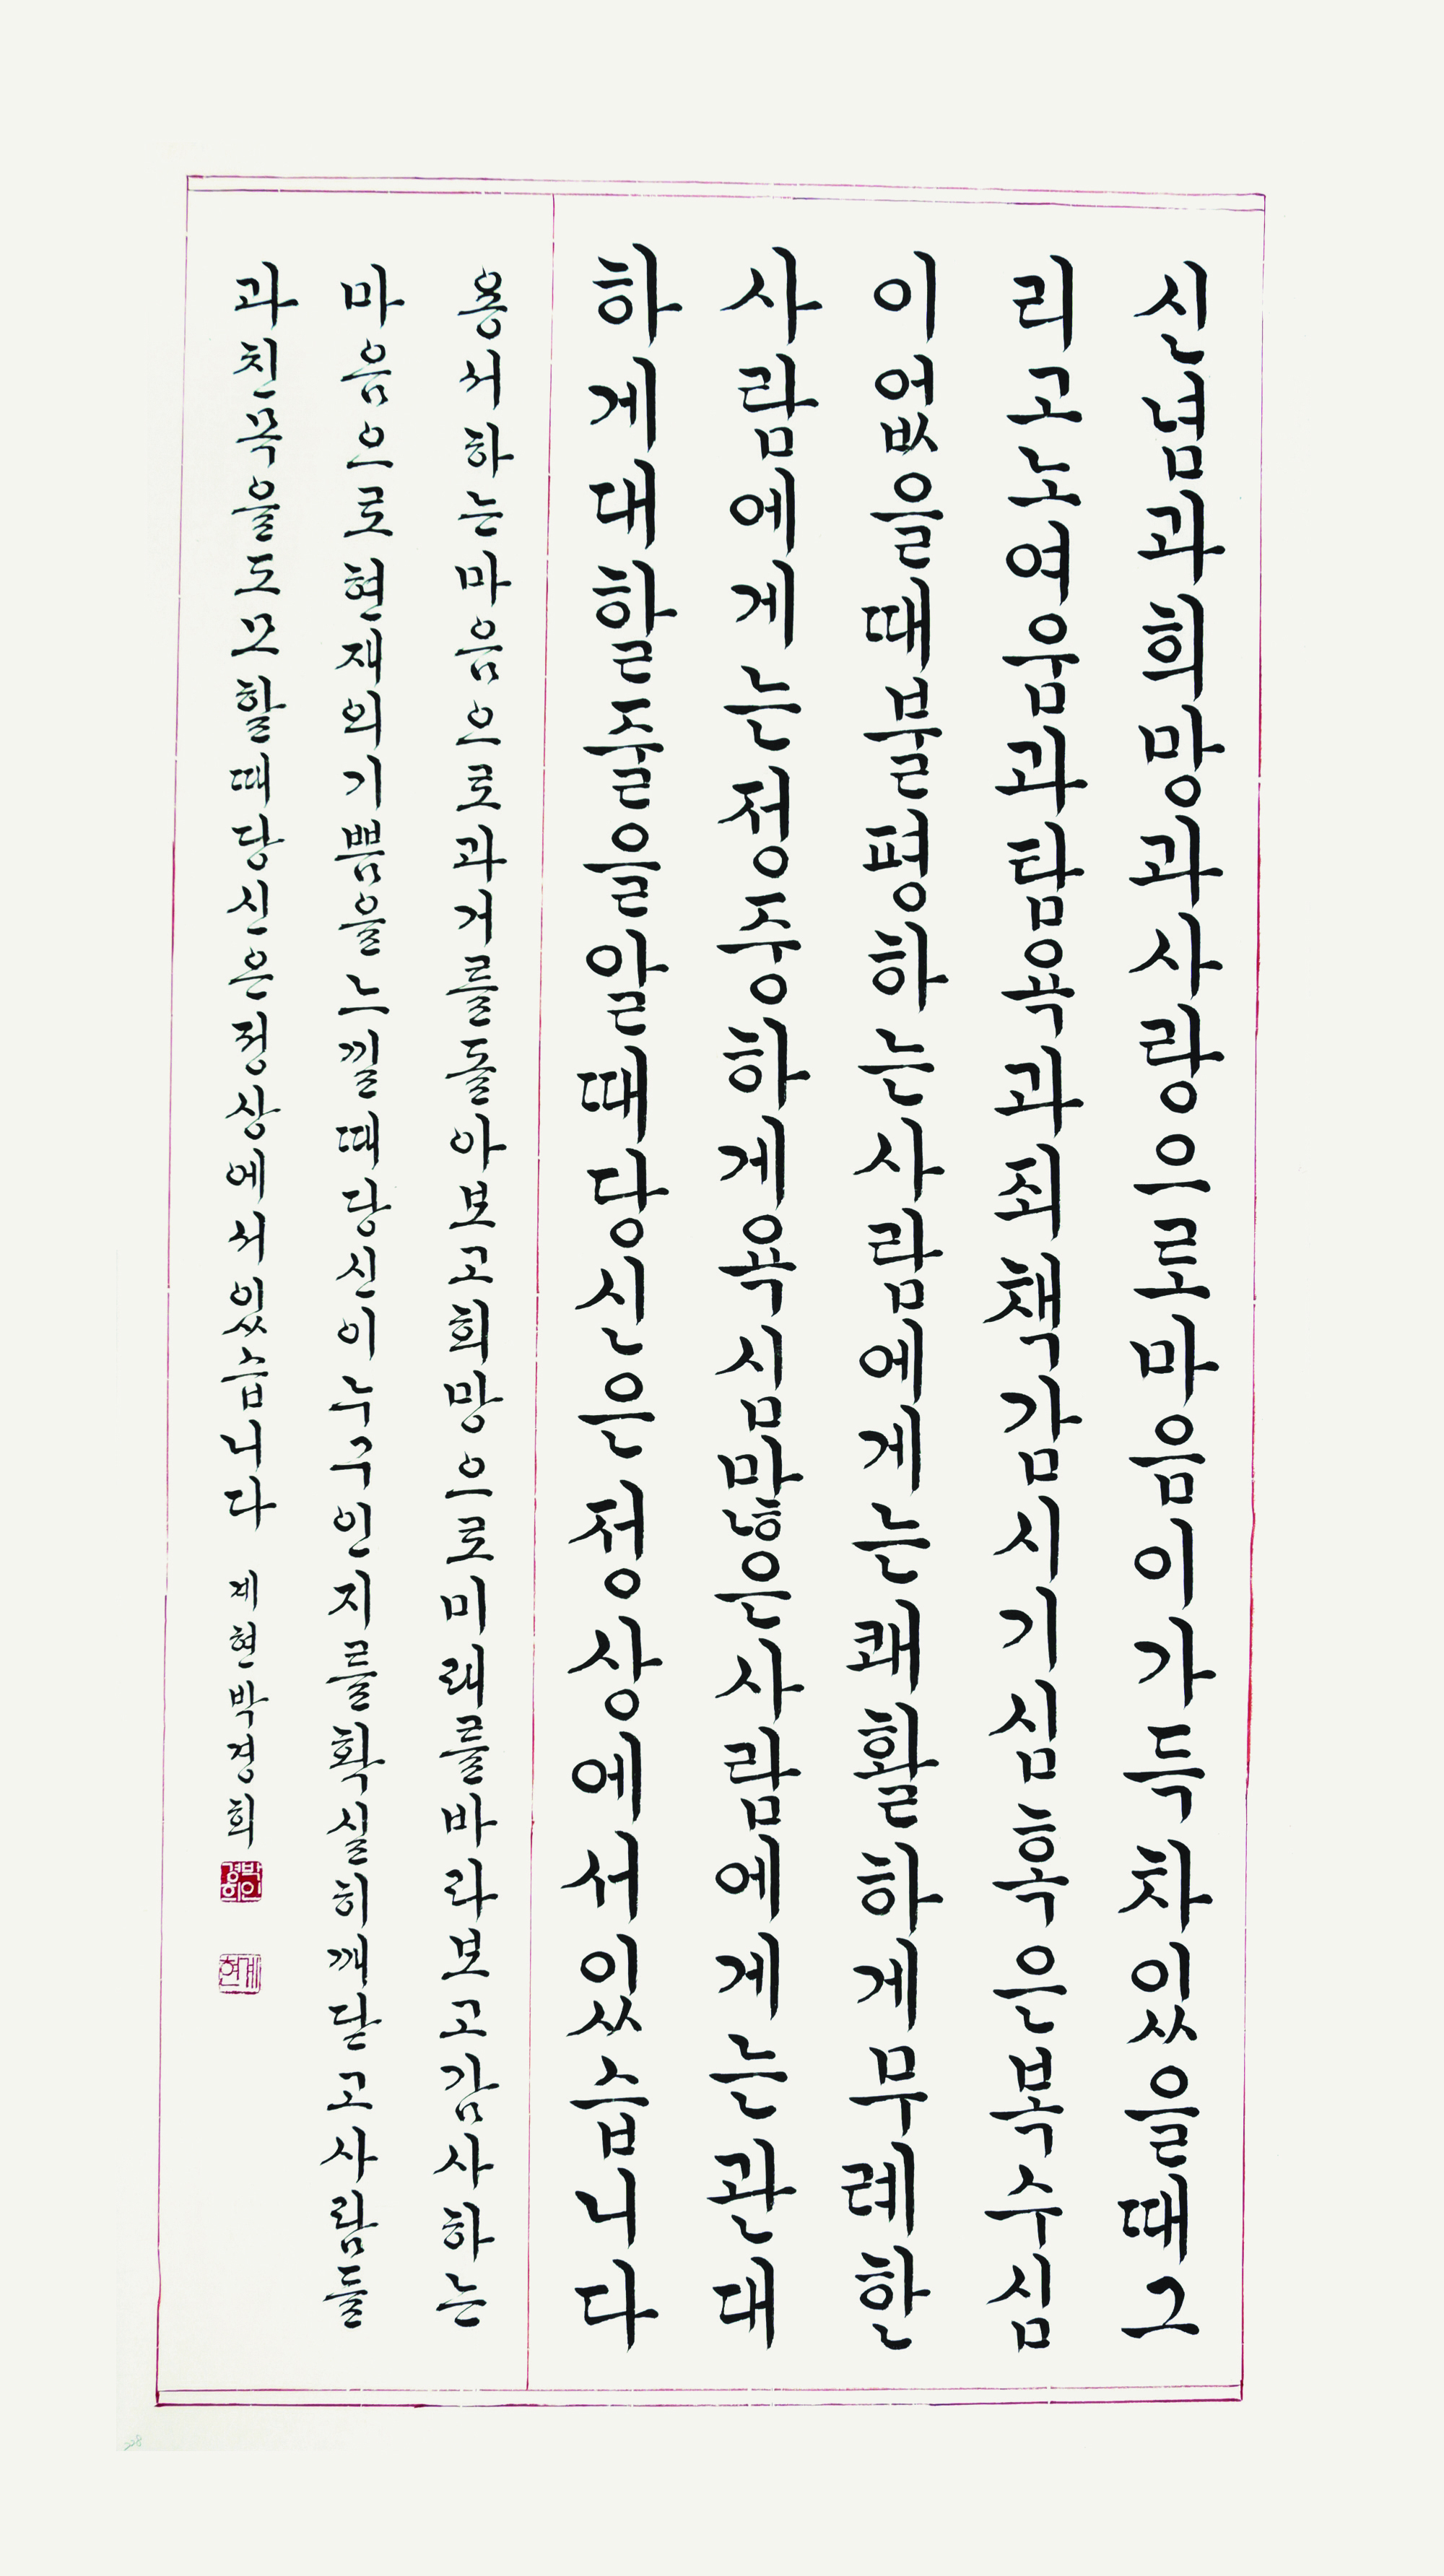 신념과희망과사랑으로마음이가득차있을때그
리고노여움과탐욕과죄책감시기심혹은복수심
이없을때불평하는사람에게는쾌활하게무례한
사람에게는정중하게욕심많은사람에게는관대
하게대할줄을알때당신은정상에서있습니다
용서하는마음으로과거를돌아보고희망으로미래를바라보고감사하는
마음으로현재의기쁨을느낄때당신이누구인지를확실히깨닫고사람들
과친목을도모할때당신은정상에서있습니다 계현박경희
박경희인
계현